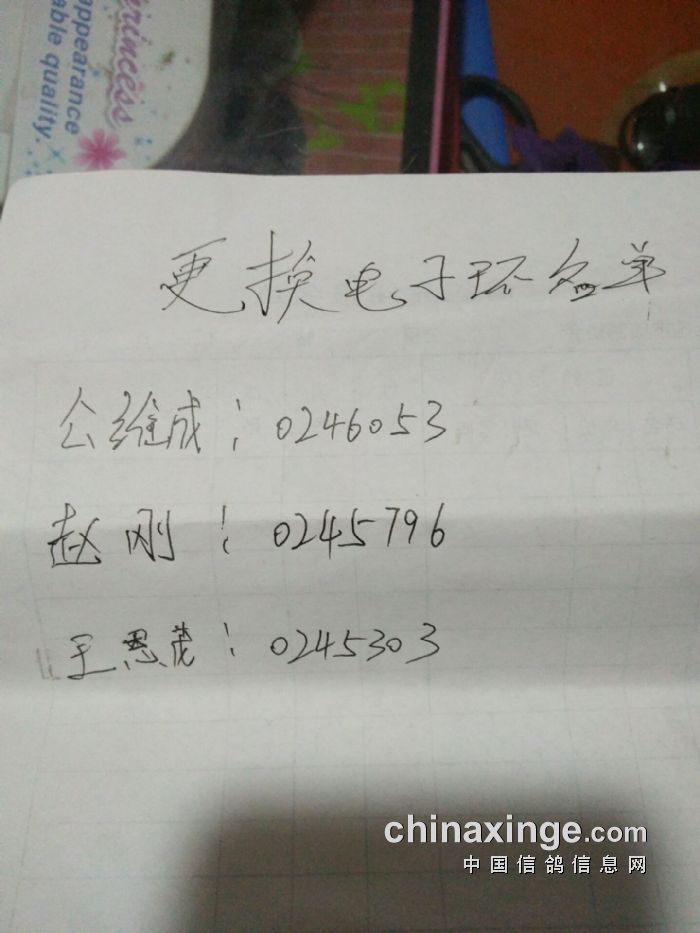 princess
appearance
able quality.
更换电子环名单
公维成：0246053
赵刚：0245796
王恩茂：0245303
chinaxinge.com
中国信鸽信息网